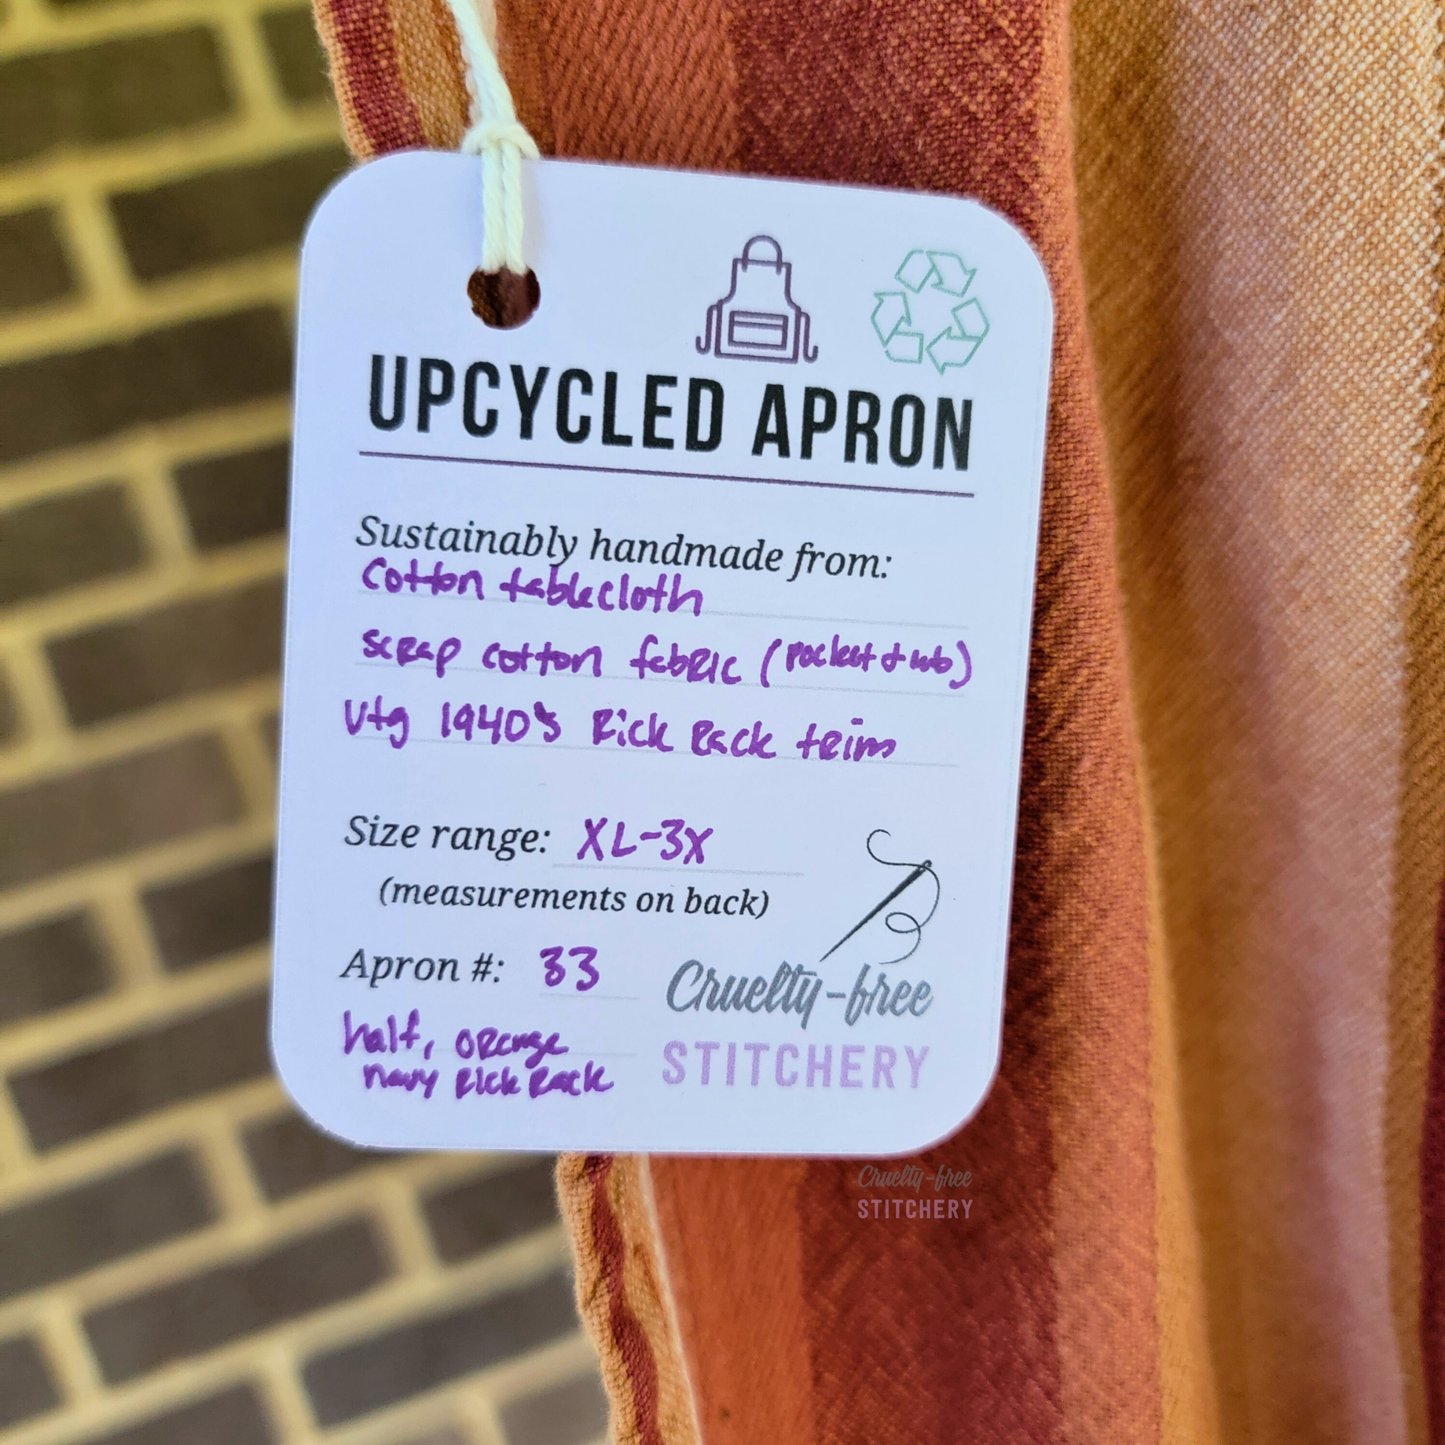 UPCYCLED APRON
Sustainably handmade from:
cotton tablecloth
scrap cotton fabric (pocket &
vtg 1940's Rick Rack trim
Size range: XL-3X
(measurements on back)
Apron #: 33
half, orange
navy Rick Rack
Cruelty-free
STITCHERY
Cruelty-free
STITCHERY